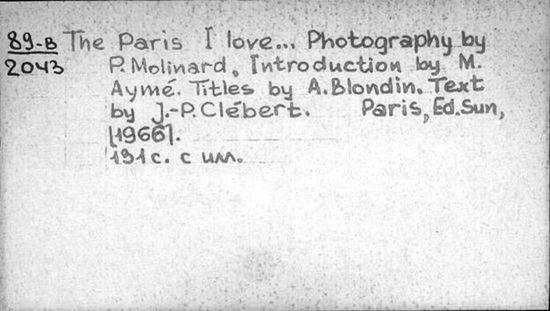 89-В The Paris I love... Photography by
2043 P. Molinard. Introduction by M.
Aymé. Titles by A. Blondin. Text
by J.-P. Clébert. Paris, Ed. Sun,
[1966].
191 с. с ил.